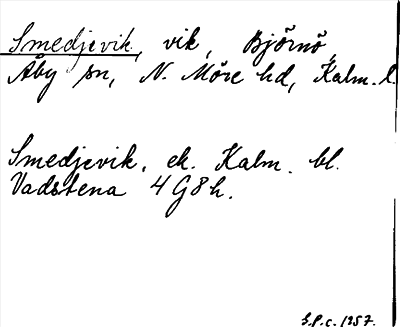 Smedjevik, vik, Björnö,
Åby sn, N. Möre hd, Kalm. l.
Smedjevik. ek. Kalm. bl.
Vadstena 4 G8h.
S.P.c. 1957.